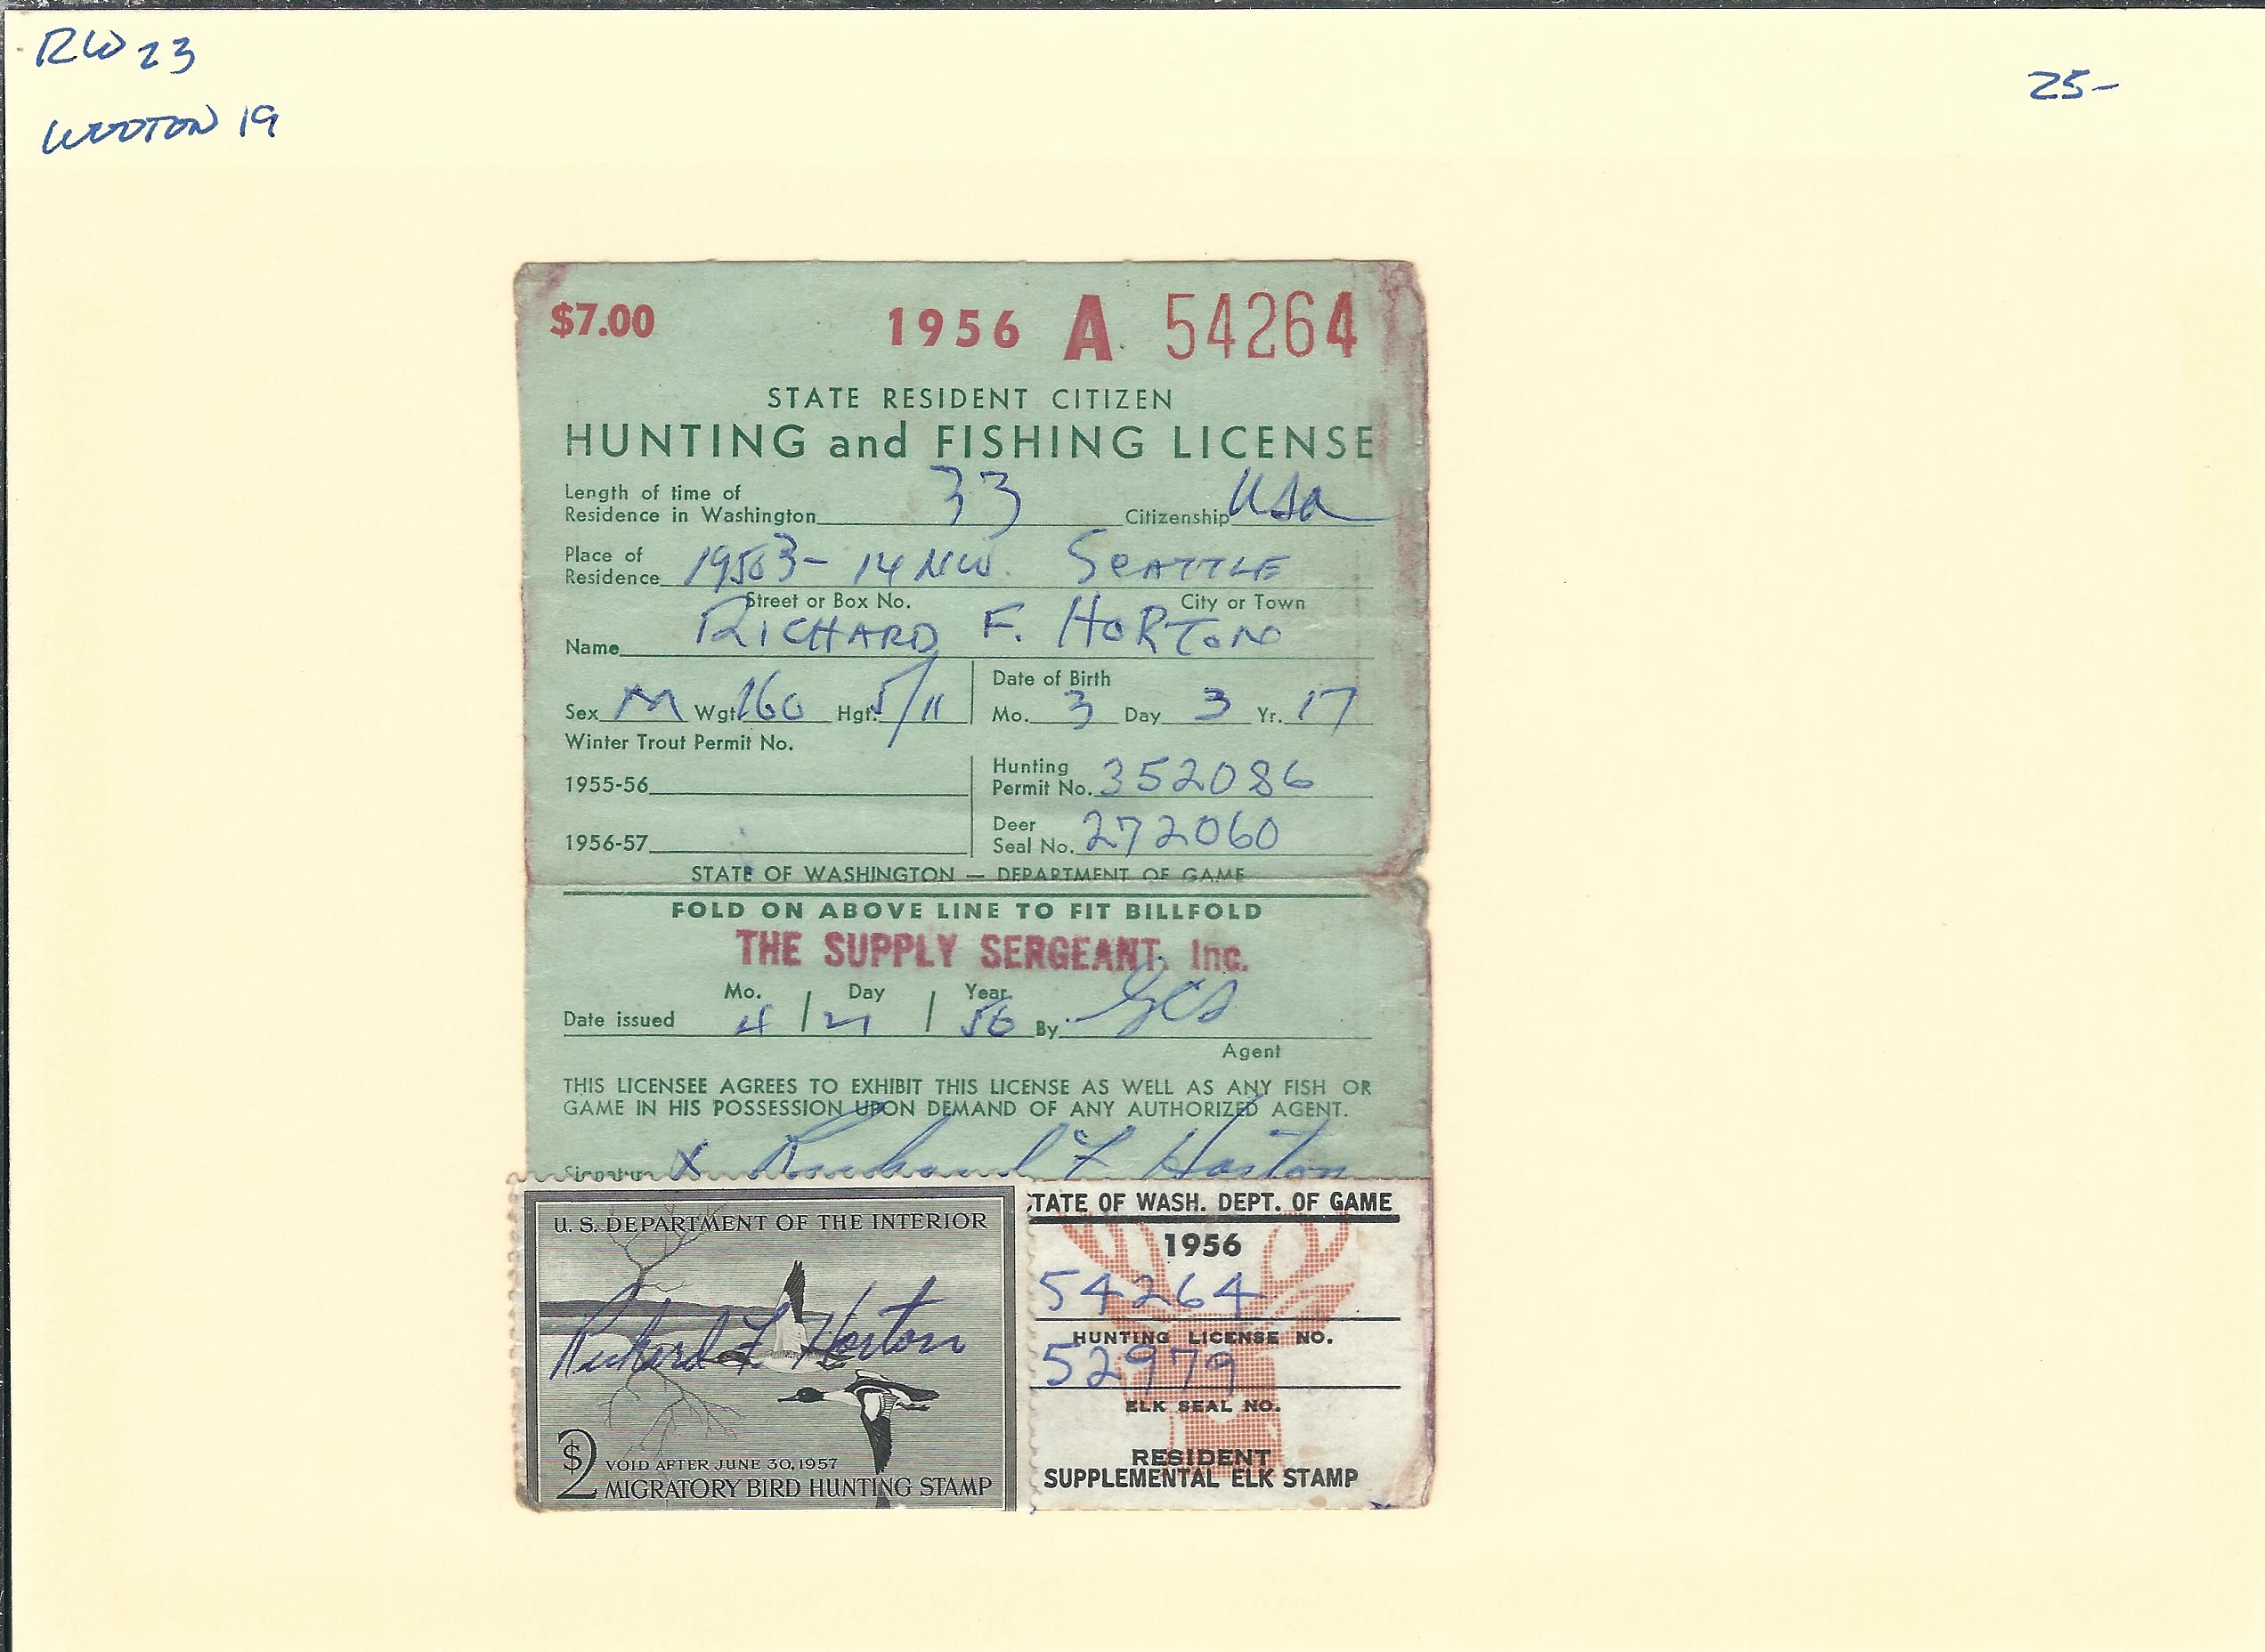 RW 23
25-
WOOTON 19
$7.00 1956 A 54264
STATE RESIDENT CITIZEN
HUNTING and FISHING LICENSE
Length of time of
Residence in Washington 33 Citizenship USA
Place of
Residence 19503- 14 NW. SEATTLE
Street or Box No. City or Town
Name RICHARD F. HORTON
Date of Birth
Sex M Wgt. 160 Hgt. 5/11 Mo. 3 Day 3 Yr. 17
Winter Trout Permit No.
1955-56
Hunting
Permit No. 352086
1956-57
Deer
Seal No. 272060
STATE OF WASHINGTON — DEPARTMENT OF GAME
FOLD ON ABOVE LINE TO FIT BILLFOLD
THE SUPPLY SERGEANT, Inc.
Mo. Day Year
Date issued 4 / 21 / 56 By
Agent
THIS LICENSEE AGREES TO EXHIBIT THIS LICENSE AS WELL AS ANY FISH OR
GAME IN HIS POSSESSION UPON DEMAND OF ANY AUTHORIZED AGENT.
Signature X Richard F Horton
U. S. DEPARTMENT OF THE INTERIOR
Richard F. Horton
$2 VOID AFTER JUNE 30, 1957
MIGRATORY BIRD HUNTING STAMP
STATE OF WASH. DEPT. OF GAME
1956
54264
HUNTING LICENSE NO.
52979
ELK SEAL NO.
RESIDENT
SUPPLEMENTAL ELK STAMP